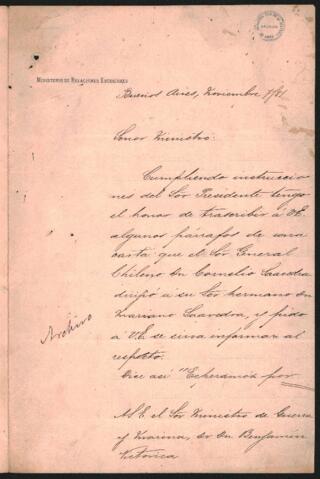 MINISTERIO DE RELACIONES EXTERIORES
Buenos Aires, Noviembre 7/81
Señor Ministro:
Cumpliendo instruccio
nes del Sor Presidente tengo
el honor de trascribir á V.E.
algunos párrafos de una
carta que el Sor General
Chileno Dn Cornelio Saavedra
dirijió á su Sor hermano Dn
Mariano Saavedra, y pido
á V.E. se sirva informar al
respecto.
Archivo
Dice así "Esperamos por
A S.E. el Sor Ministro de Guerra
y Marina, Dr Dn Benjamin
Victorica